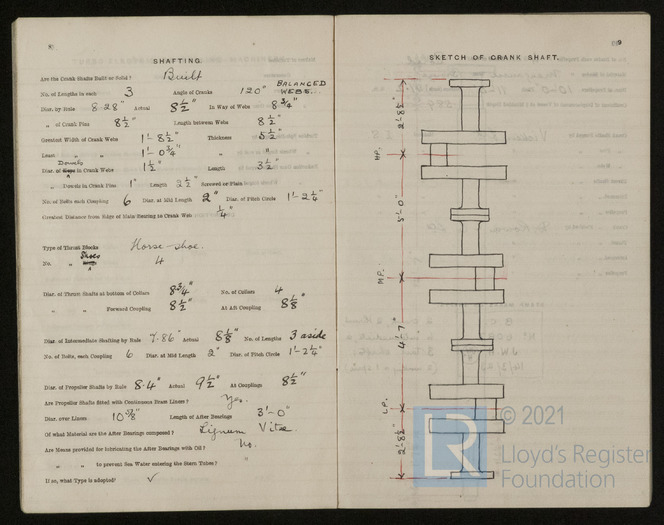 SHAFTING.
Are the Crank Shafts Built or Solid? Built
No. of Lengths in each 3 Angle of Cranks 120° BALANCED WEBS.
Diar. by Rule 8·28" Actual 8 1/2" In Way of Webs 8 3/4"
" of Crank Pins 8 1/2" Length between Webs 8 1/2"
Greatest Width of Crank Webs 1'- 8 1/2" Thickness 5 1/2"
Least " " 1'- 0 3/4" " "
Diar. of Keys Dowels in Crank Webs 1 1/2" Length 3 1/2"
" Dowels in Crank Pins 1" Length 2 1/2" Screwed or Plain
No. of Bolts each Coupling 6 Diar. at Mid Length 2" Diar. of Pitch Circle 1'- 2 1/4"
Greatest Distance from Edge of Main Bearing to Crank Web 1/4"
Type of Thrust Blocks Horse-shoe.
No. " Shoes 4
Diar. of Thrust Shafts at bottom of Collars 8 3/4" No. of Collars 4
" " Forward Coupling 8 1/2" At Aft Coupling 8 1/8"
Diar. of Intermediate Shafting by Rule 7·86" Actual 8 1/8" No. of Lengths 3 aside
No. of Bolts, each Coupling 6 Diar. at Mid Length 2" Diar. of Pitch Circle 1'- 2 1/4"
Diar. of Propeller Shafts by Rule 8·4" Actual 9 1/2" At Couplings 8 1/2"
Are Propeller Shafts fitted with Continuous Brass Liners? Yes.
Diar. over Liners 10 5/8" Length of After Bearings 3'-0"
Of what Material are the After Bearings composed? Lignum Vitae
Are Means provided for lubricating the After Bearings with Oil? No.
" " to prevent Sea Water entering the Stern Tubes?
If so, what Type is adopted? ✓
9
SKETCH OF CRANK SHAFT.
2'-8 1/2"
H.P.
5'-0"
M.P.
4'-7"
L.P.
2'-8 1/2"
LR
© 2021
Lloyd's Register
Foundation